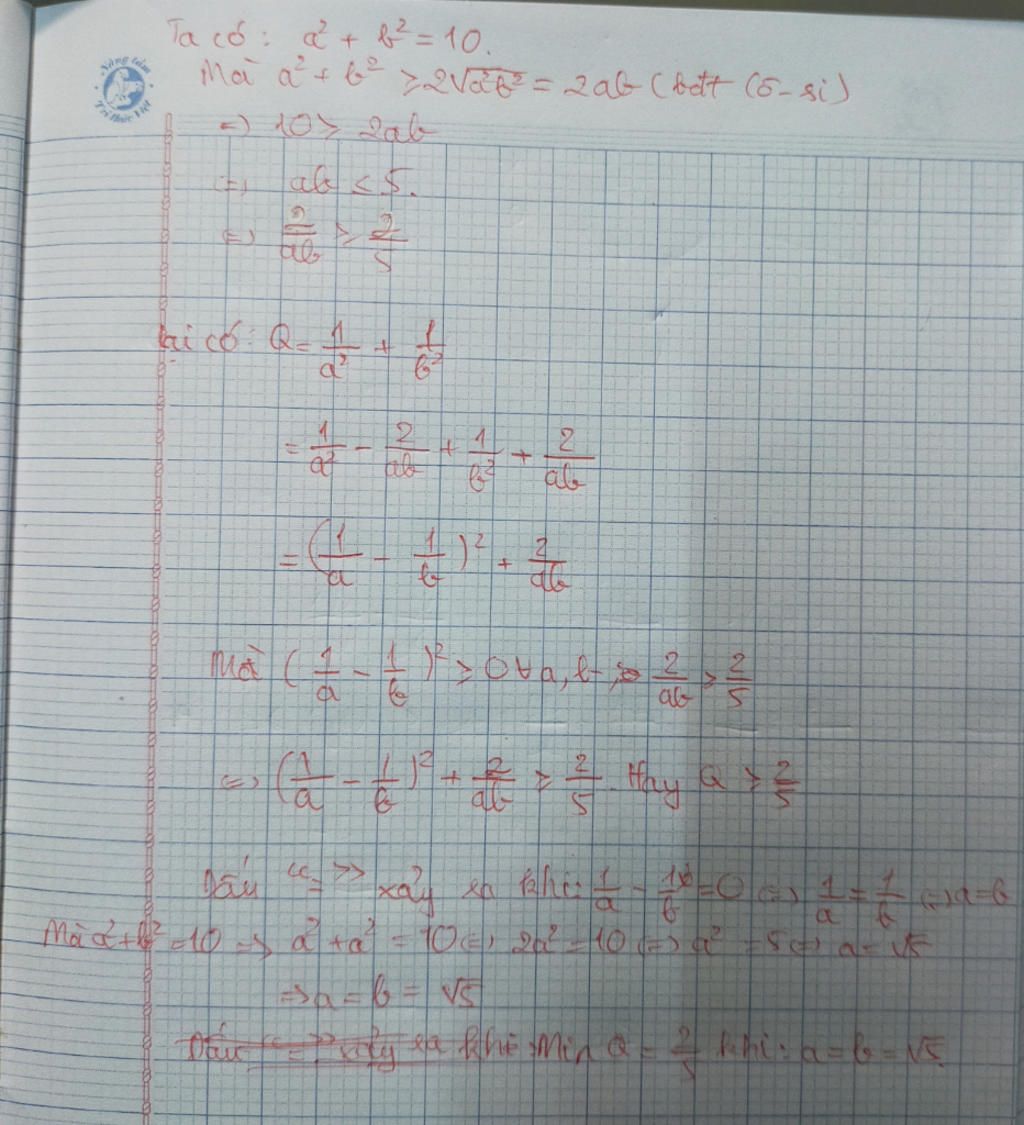 Ta có: a² + b² = 10.
Nâng tầm
Tri thức Việt
Mà a² + b² ≥ 2√a²b² = 2ab (bđt Cô-si)
=> 10 ≥ 2ab
<=> ab ≤ 5.
<=> 2/ab ≥ 2/5
Lại có: Q = 1/a² + 1/b²
= 1/a² - 2/ab + 1/b² + 2/ab
= (1/a - 1/b)² + 2/ab
Mà (1/a - 1/b)² ≥ 0 ∀ a, b, 2/ab ≥ 2/5
<=> (1/a - 1/b)² + 2/ab ≥ 2/5. Hay Q ≥ 2/5
Dấu "=" xảy ra khi: 1/a - 1/b = 0 <=> 1/a = 1/b <=> a = b
Mà a² + b² = 10 => a² + a² = 10 <=> 2a² = 10 <=> a² = 5 <=> a = √5
=> a = b = √5
Dấu "=" xảy ra khi Min Q = 2/5 khi: a = b = √5.